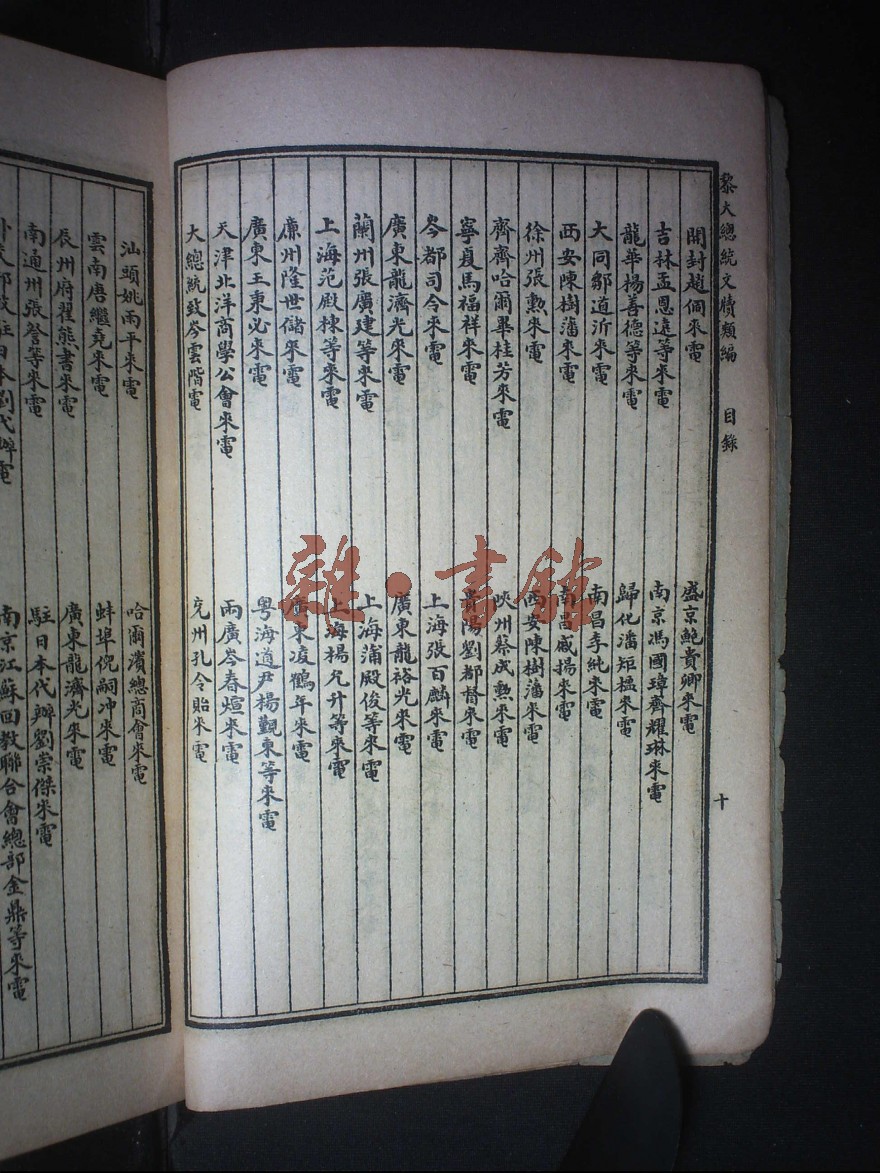 黎大總統文牘類編 目錄 十
開封趙倜來電 盛京鮑貴卿來電
吉林孟恩遠等來電 南京馮國璋齊耀琳來電
龍華楊善德等來電 歸化潘矩楹來電
大同鄒道沂來電 南昌李純來電
西安陳樹藩來電 南昌戚揚來電
徐州張勲來電 西安陳樹藩來電
齊齊哈爾畢桂芳來電 陜州蔡成勲來電
寧夏馬福祥來電 貴陽劉都督來電
岑都司令來電 上海張百麟來電
廣東龍濟光來電 廣東龍裕光來電
蘭州張廣建等來電 上海蒲殿俊等來電
上海范殿棟等來電 上海楊允升等來電
廉州隆世儲來電 廣東凌鶴年來電
廣東王秉必來電 粵海道尹楊觀東等來電
天津北洋商學公會來電 兩廣岑春煊來電
大總統致岑雲階電 兗州孔令貽來電
汕頭姚雨平來電 哈爾濱總商會來電
雲南唐繼堯來電 蚌埠倪嗣冲來電
辰州府翟熊書來電 廣東龍濟光來電
南通州張詧等來電 駐日本代辦劉崇傑來電
日本劉代辦電 南京江蘇回教聯合會總部金鼎等來電
雜·書館